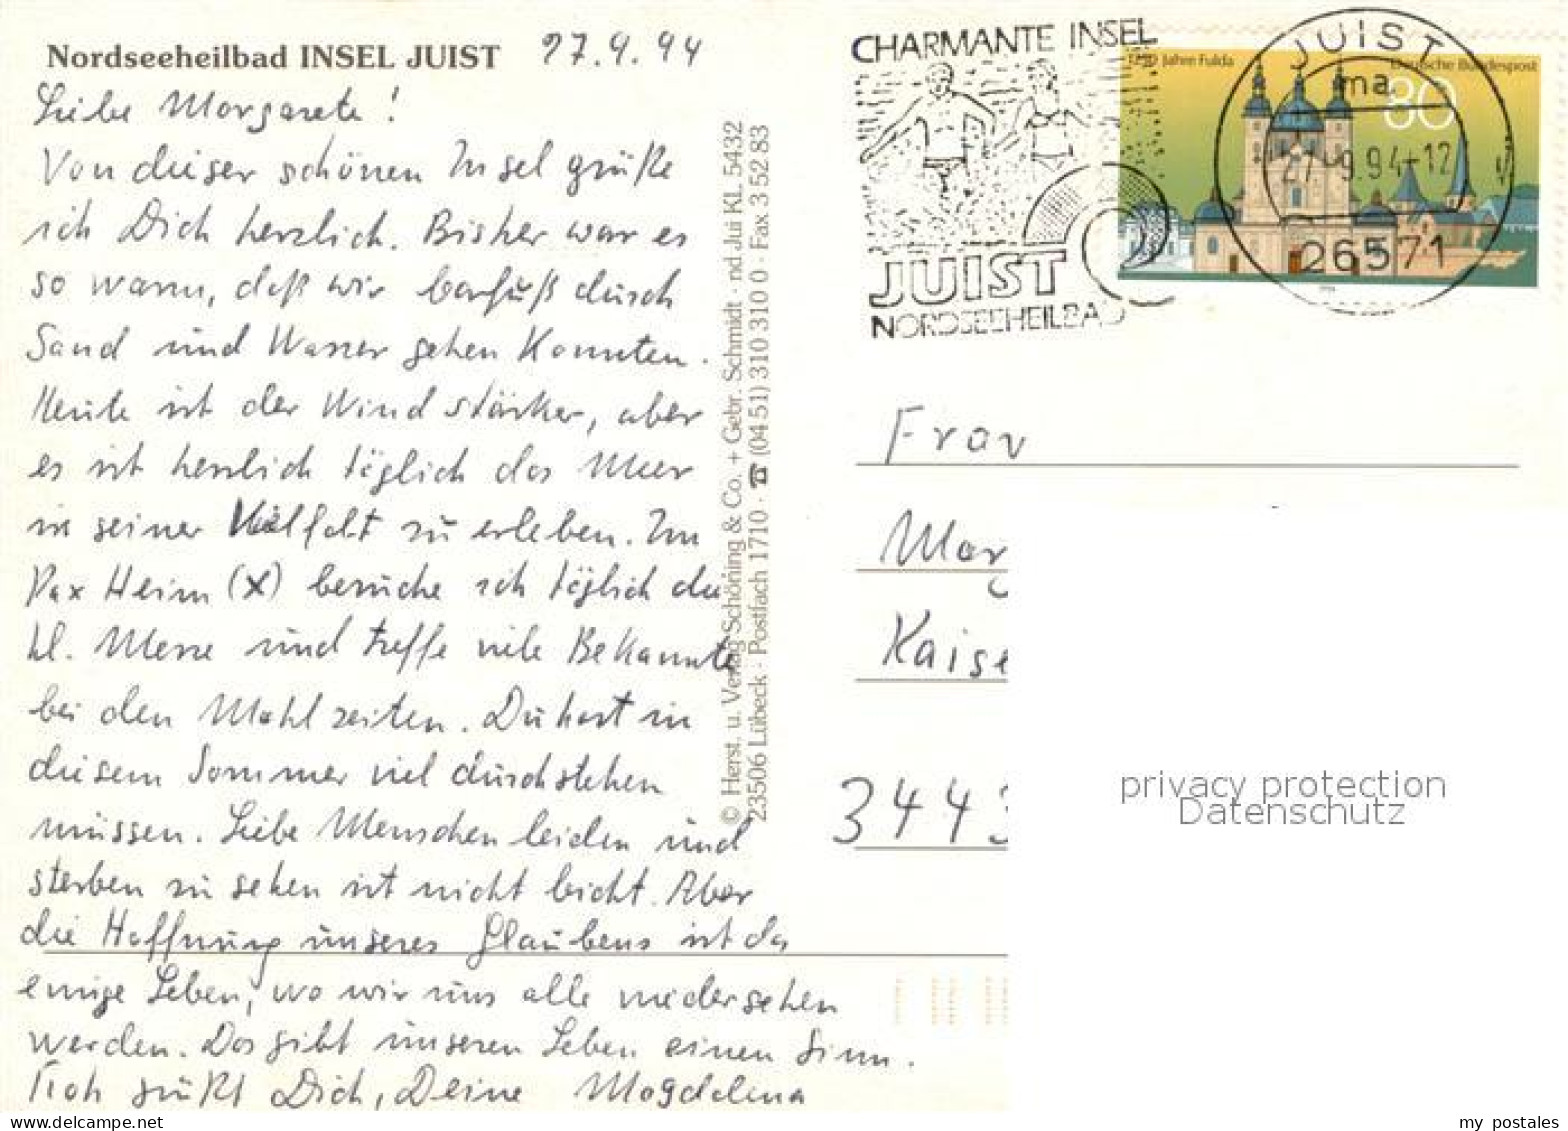 Nordseeheilbad INSEL JUIST 27.9.94
Liebe Margarete!
Von dieser schönen Insel grüße
ich Dich herzlich. Bisher war es
so warm, daß wir barfuß durch
Sand und Wasser gehen konnten.
Heute ist der Wind stärker, aber
es ist herrlich täglich das Meer
in seiner Vielfalt zu erleben. Im
Pax Heim (x) besuche ich täglich die
hl. Messe und treffe viele Bekannte
bei den Mahlzeiten. Du hast in
diesem Sommer viel durchstehen
müssen. Liebe Menschen leiden und
sterben zu sehen ist nicht leicht. Aber
die Hoffnung unseres Glaubens ist das
ewige Leben, wo wir uns alle wiedersehen
werden. Das gibt unserem Leben einen Sinn.
grüßt Dich, Deine Magdalena
© Herst. u. Verlag Schöning & Co. + Gebr. Schmidt · nd Jui KL 5432
23506 Lübeck · Postfach 1710 · ☎ (04 51) 310 310 0 · Fax 3 52 83
CHARMANTE INSEL
JUIST
NORDSEEHEILBAD
1250 Jahre Fulda
Deutsche Bundespost
80
JUIST
ma
27.-9.94-12
26571
Frau
Marg
Kaise
3443
privacy protection
Datenschutz
my postales